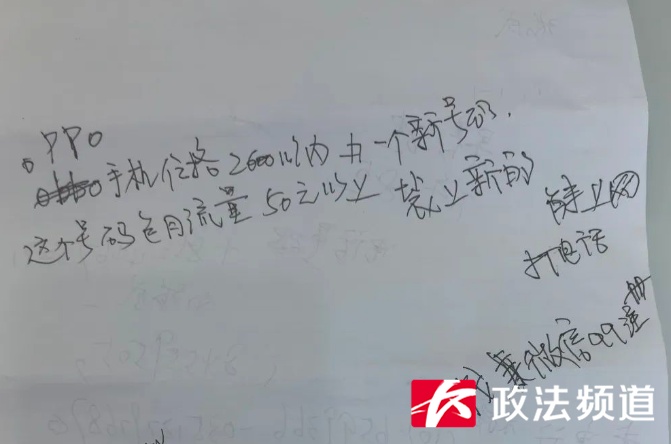 OPPO
手机价格2600以内 办一个新号码.
这个号码包月流量50元以上 装上新的
能上网
打电话
微信QQ注册
政法频道